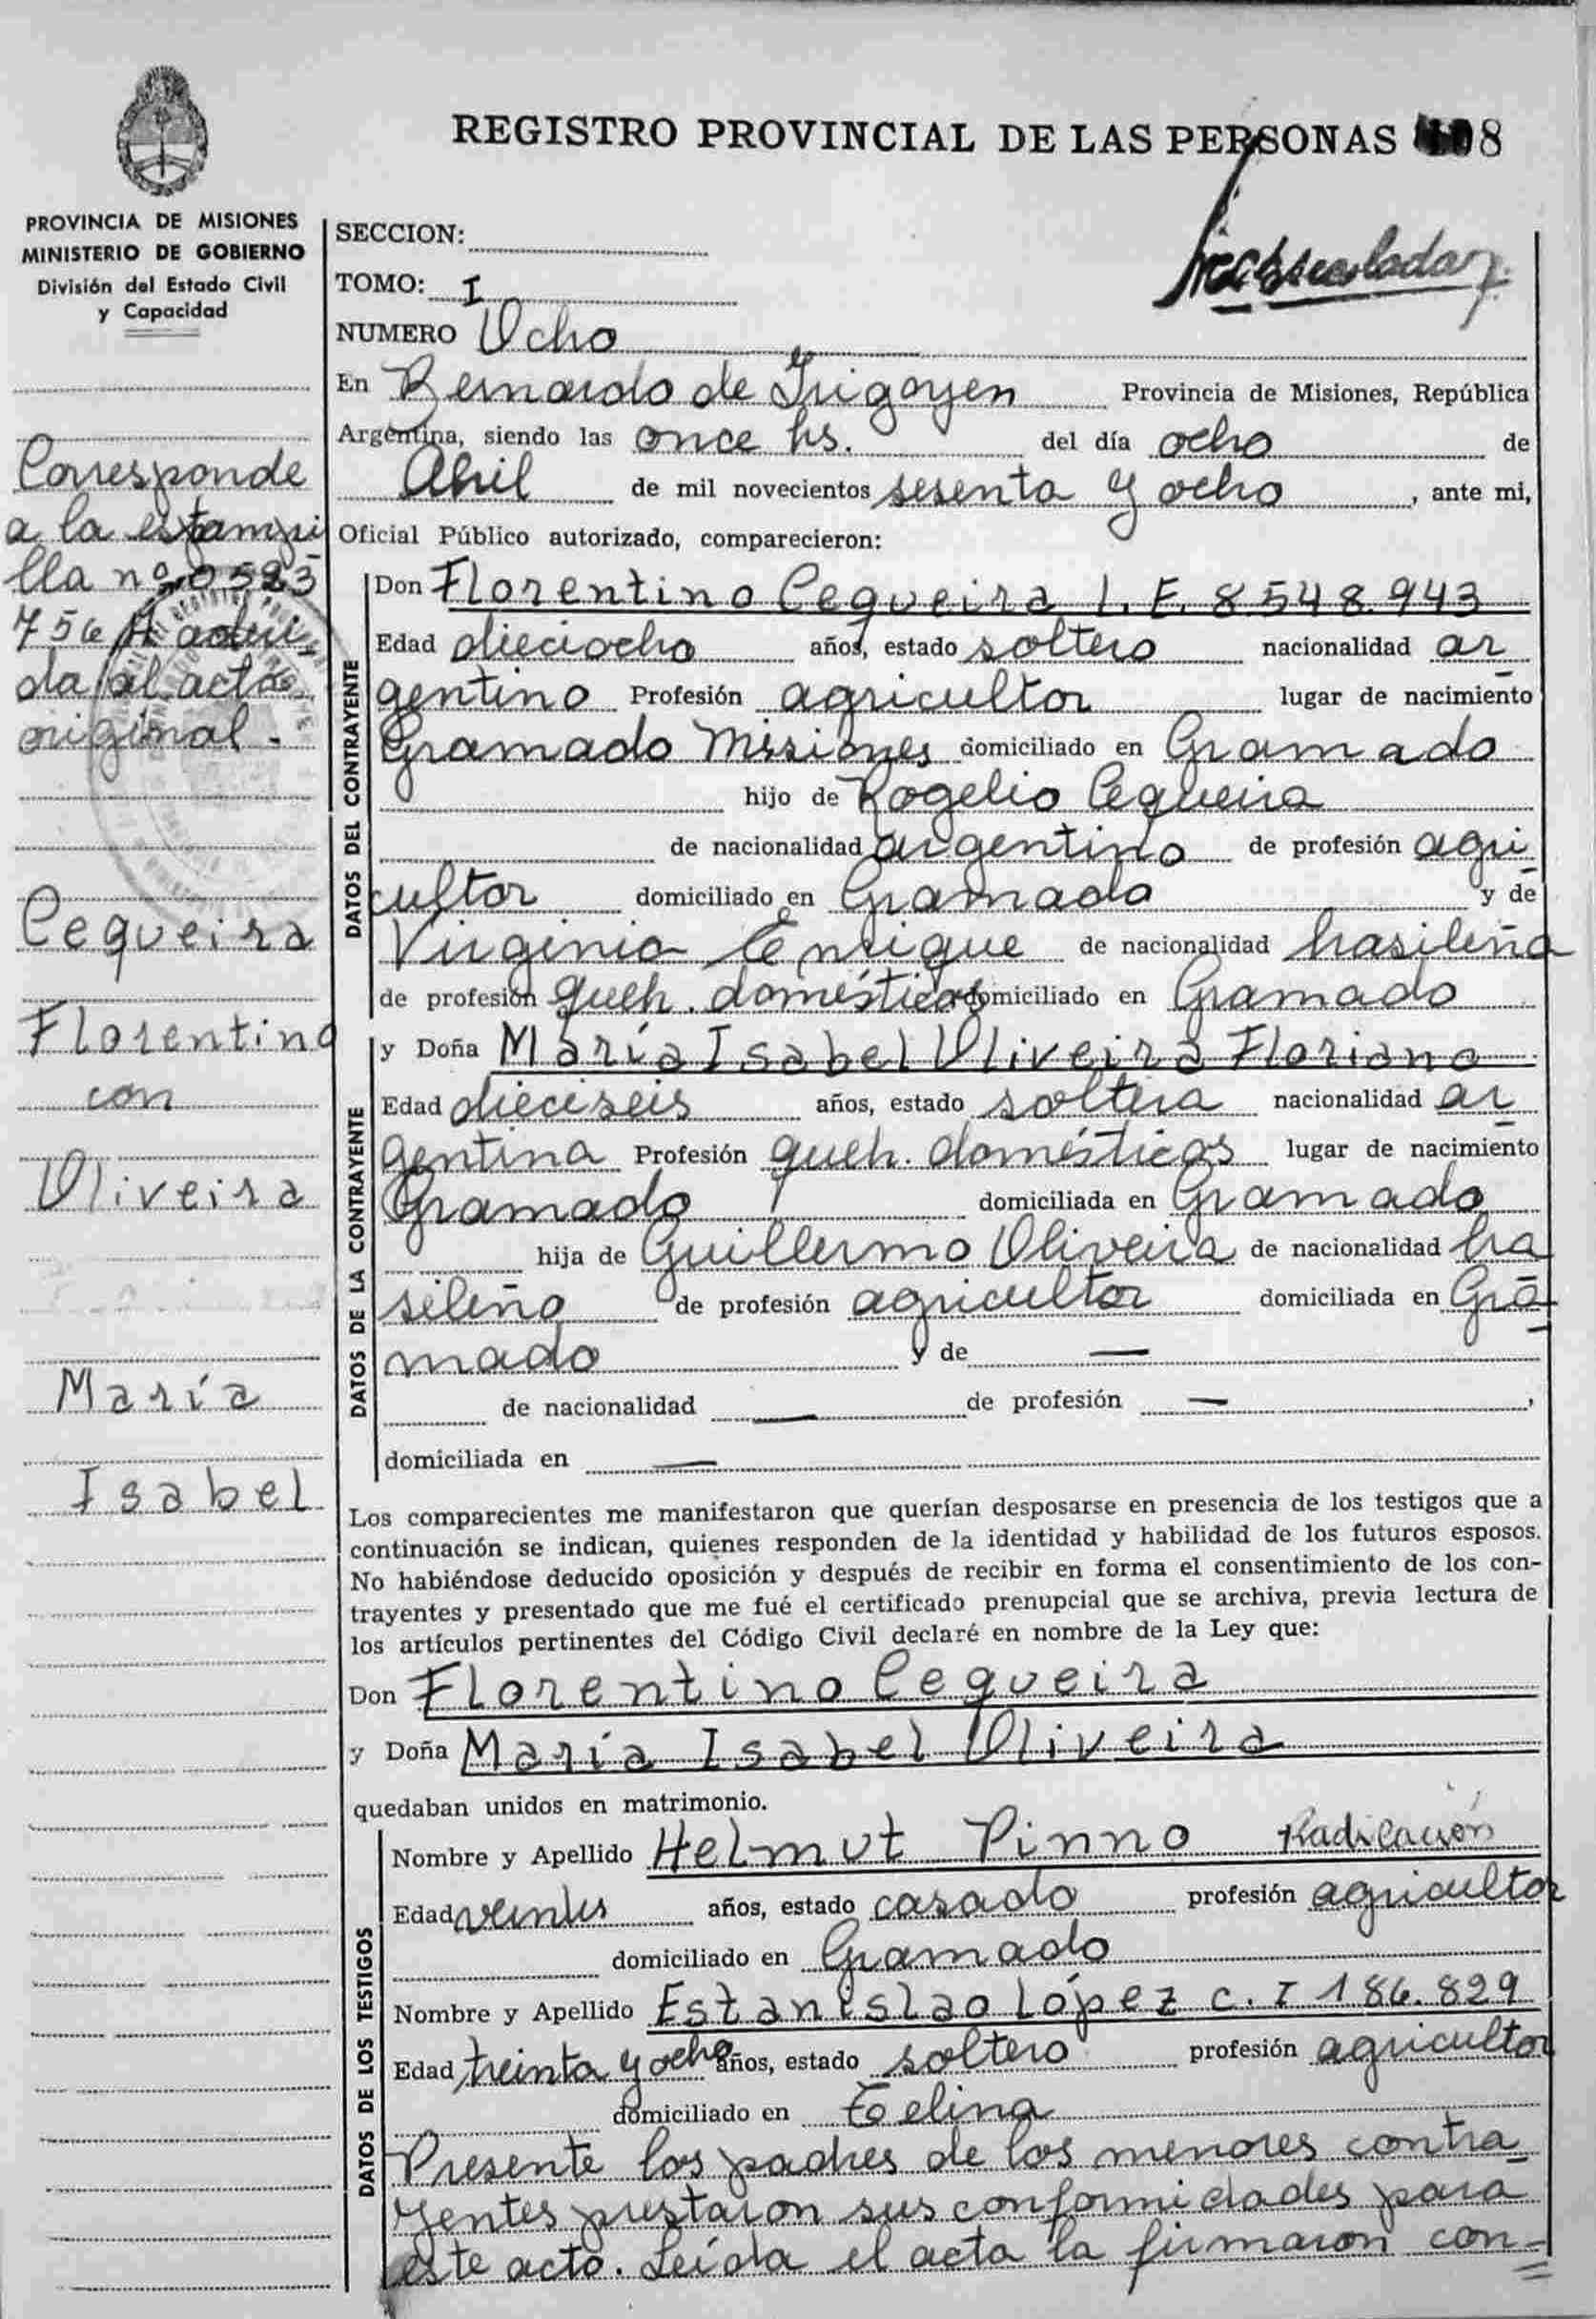 REGISTRO PROVINCIAL DE LAS PERSONAS 8
PROVINCIA DE MISIONES
MINISTERIO DE GOBIERNO
División del Estado Civil
y Capacidad
SECCION:
TOMO: I
NUMERO Ocho
En Bernardo de Irigoyen Provincia de Misiones, República
Argentina, siendo las once hs. del día ocho de
Abril de mil novecientos sesenta y ocho, ante mi,
Oficial Público autorizado, comparecieron:
Corresponde
a la estampi
lla nº 0523
756 A
da al acta
original.-
Cequeira
Florentino
con
Oliveira
María
Isabel
DATOS DEL CONTRAYENTE
Don Florentino Cequeira L.E. 8548.943
Edad dieciocho años, estado soltero nacionalidad ar
gentino Profesión agricultor lugar de nacimiento
Gramado Misiones domiciliado en Gramado
hijo de Rogelio Cequeira
de nacionalidad argentino de profesión agri
cultor domiciliado en Gramado y de
Virginia Enrique de nacionalidad brasileña
de profesión queh. domésticos domiciliado en Gramado
DATOS DE LA CONTRAYENTE
y Doña María Isabel Oliveira Floriano
Edad dieciseis años, estado soltera nacionalidad ar
gentina Profesión queh. domésticos lugar de nacimiento
Gramado domiciliada en Gramado
hija de Guillermo Oliveira de nacionalidad bra
sileña de profesión agricultor domiciliada en Gra
mado y de —
de nacionalidad — de profesión —,
domiciliada en —
Los comparecientes me manifestaron que querían desposarse en presencia de los testigos que a
continuación se indican, quienes responden de la identidad y habilidad de los futuros esposos.
No habiéndose deducido oposición y después de recibir en forma el consentimiento de los con-
trayentes y presentado que me fué el certificado prenupcial que se archiva, previa lectura de
los artículos pertinentes del Código Civil declaré en nombre de la Ley que:
Don Florentino Cequeira
y Doña María Isabel Oliveira
quedaban unidos en matrimonio.
DATOS DE LOS TESTIGOS
Nombre y Apellido Helmut Pinno Radicación
Edad años, estado casado profesión agricultor
domiciliado en Gramado
Nombre y Apellido Estanislao López C.I 186.829
Edad treinta y ocho años, estado soltero profesión agricultor
domiciliado en
Presente los padres de los menores contra
yentes prestaron sus conformidades para
este acto. Leída el acta la firmaron con=